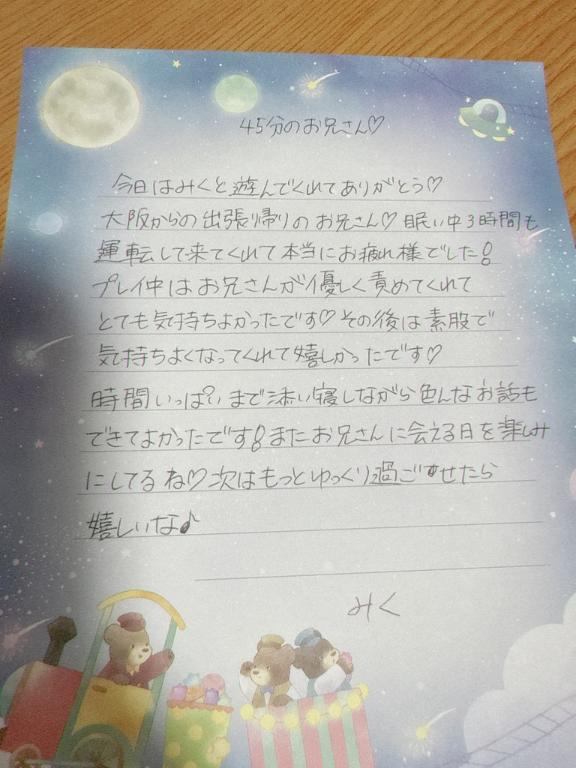 45分のお兄さん♡
今日はみくと遊んでくれてありがとう♡
大阪からの出張帰りのお兄さん♡眠い中3時間も
運転して来てくれて本当にお疲れ様でした!
プレイ中はお兄さんが優しく責めてくれて
とても気持ちよかったです♡その後は素股で
気持ちよくなってくれて嬉しかったです♡
時間いっぱいまで添い寝しながら色んなお話も
できてよかったです!またお兄さんに会える日を楽しみ
にしてるね♡次はもっとゆっくり過ごせたら
嬉しいな♪
みく